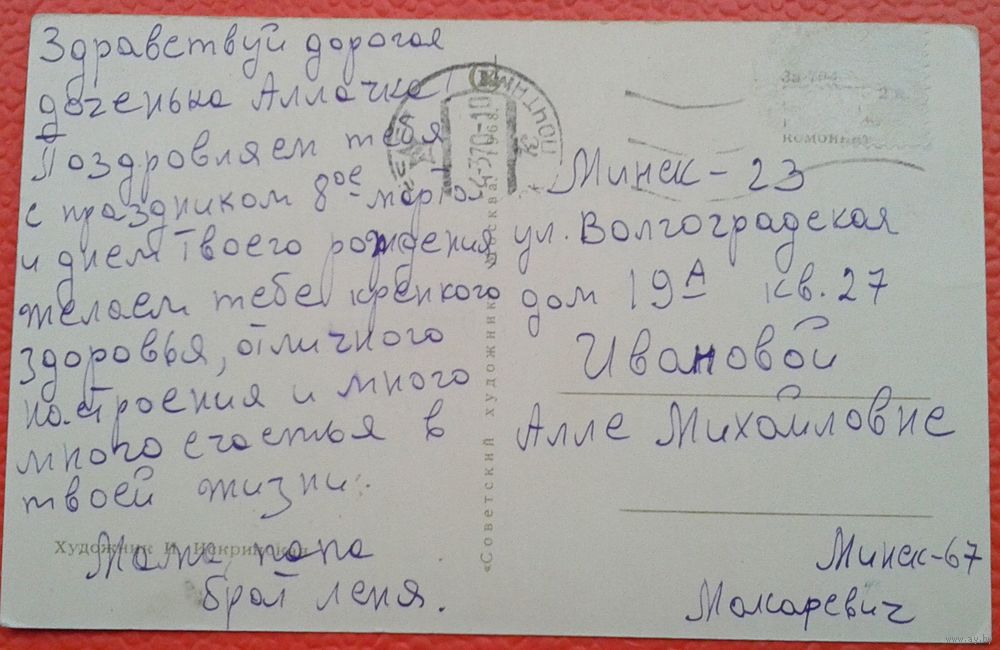 Здравствуй дорогая
доченька Аллачка!
Поздровляем тебя
с праздником 8ое марта
и днем твоего рождения
желаем тебе крепкого
здоровья, отличного
настроения и много
много счастья в
твоей жизни.
Мама, папа
брат леня.
Художник И. Искринская
«Советский художник» Москва 1968
ПОЧТАМТ
Минск - 23
ул. Волгоградская
дом 19А кв. 27
Ивановой
Алле Михайловне
Минск-67
Макаревич
www.ay.by